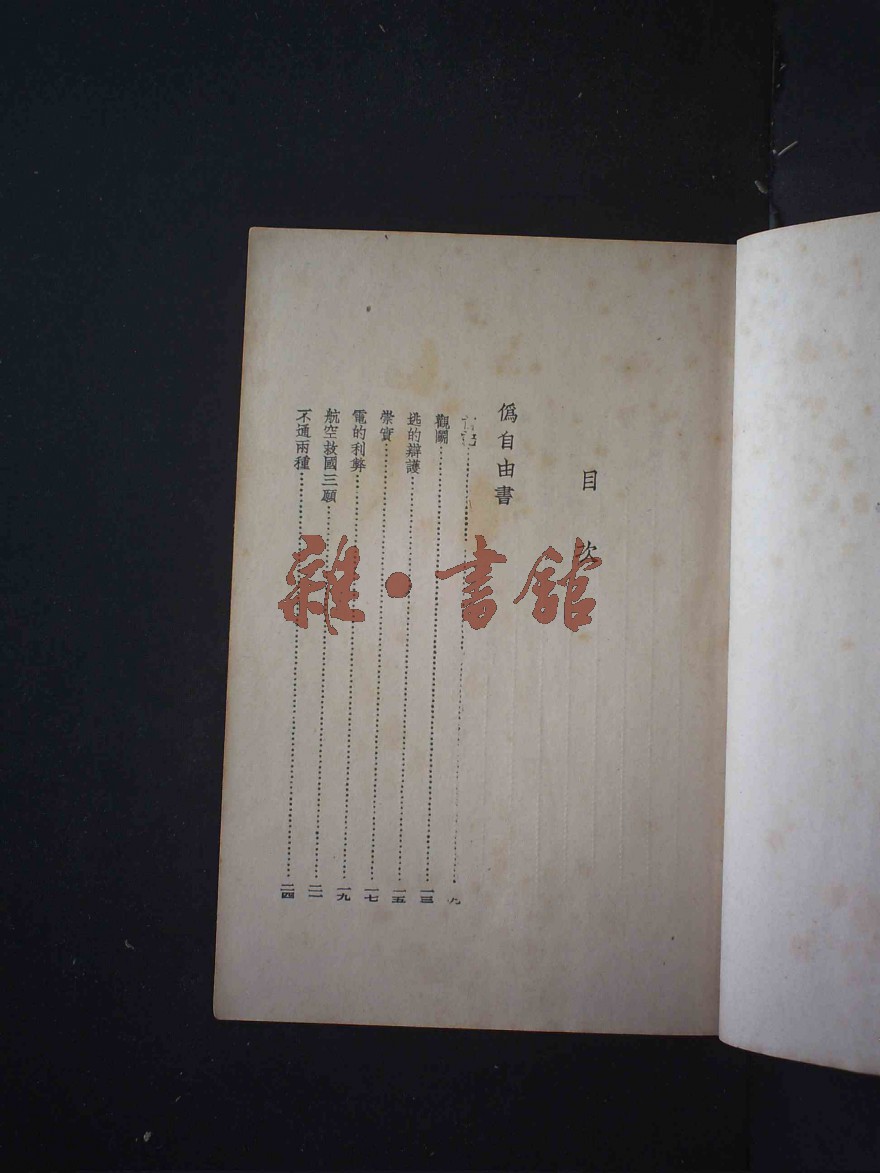 目次
偽自由書
九
觀鬭……一三
逃的辯護……一五
崇實……一七
電的利弊……一九
航空救國三願……二一
不通兩種……二四
雜·書館